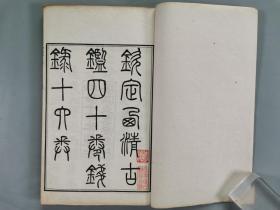 欽定西清古
鑑四十卷錢
錄十六卷